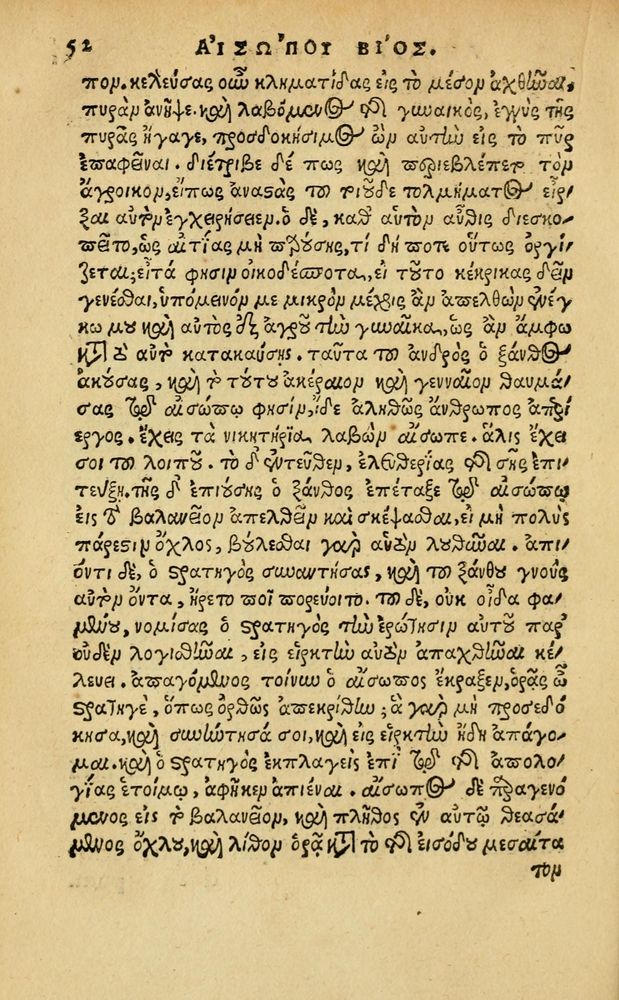 52 ΑΙΣΩΠΟΥ ΒΙΟΣ.
πον. κελεύσας οὖν κληματίδας εἰς τὸ μέσον ἀχθῆναι,
πυρὰν ἀνῆψε. καὶ λαβόμενος τῆς γυναικὸς, ἐγγὺς τῆς
πυρᾶς ἤγαγε, προσδοκήσιμος ὢν αὐτὴν εἰς τὸ πῦρ
ἐπαφεῖναι. διέτριβε δέ πως καὶ περιεβλέπετο τὸν
ἄγροικον, εἴπως ἀναστὰς τοῦ τοιοῦδε τολμήματος εἶρ-
ξαι αὐτὸν ἐγχειρήσειεν. ὁ δὲ, καθ' αὑτὸν αὖθις διεσκο-
πεῖτο, ὡς αἰτίας μὴ παρούσης, τί δή ποτε οὕτως ὀργί-
ζεται; εἶτά φησιν οἰκοδέσποτα, εἰ τοῦτο κέκρικας δεῖν
γενέσθαι, ὑπόμεινόν με μικρὸν μέχρις ἂν ἀπελθὼν ἐνέγ-
κω μου καὶ αὐτὸς ἐξ ἀγροῦ τὴν γυναῖκα, ὡς ἂν ἄμφω
κατὰ ταυτὸν κατακαύσῃς. ταῦτα τοῦ ἀνδρὸς ὁ ξάνθος
ἀκούσας, καὶ τὸ τούτου ἀκέραιον καὶ γενναῖον θαυμά-
σας τῷ αἰσώπῳ φησὶν, ἴδε ἀληθῶς ἄνθρωπος ἀπερί-
εργος. ἔχεις τὰ νικητήρια λαβὼν αἴσωπε. ἅλις ἔχει
σοι τοῦ λοιποῦ. τὸ δ' ἐντεῦθεν, ἐλευθερίας τῆς σῆς ἐπι-
τεύξῃ. τῆς δ' ἐπιούσης ὁ ξάνθος ἐπέταξε τῷ αἰσώπῳ
εἰς τὸ βαλανεῖον ἀπελθεῖν καὶ σκέψασθαι, εἰ μὴ πολὺς
πάρεστιν ὄχλος, βούλεσθαι γὰρ αὐτὸν λυθῆναι. ἀπι-
όντι δὲ, ὁ στρατηγὸς συναντήσας, καὶ τοῦ ξάνθου γνοὺς
αὐτὸν ὄντα, ἤρετο ποῖ πορεύοιτο. τοῦ δὲ, οὐκ οἶδα φα-
μένου, νομίσας ὁ στρατηγὸς τὴν ἐρώτησιν αὐτοῦ παρ'
οὐδὲν λογισθῆναι, εἰς εἱρκτὴν αὐτὸν ἀπαχθῆναι κέ-
λευει. ἀπαγόμενος τοίνυν ὁ αἴσωπος ἔκραξεν, ὁρᾷς ὦ
στρατηγὲ, ὅπως ὀρθῶς ἀπεκρίθην; ἃ γὰρ μὴ προσεδό-
κησα, καὶ συνήντησά σοι, καὶ εἰς εἱρκτὴν ἤδη ἀπάγο-
μαι. καὶ ὁ στρατηγὸς ἐκπλαγεὶς ἐπὶ τῷ τῆς ἀπολο-
γίας ἑτοίμῳ, ἀφῆκεν ἀπιέναι. αἴσωπος δὲ παραγενό-
μενος εἰς τὸ βαλανεῖον, καὶ πλῆθος ἐν αὐτῷ θεασά-
μενος ὄχλου, καὶ λίθον ὁρᾷ κατὰ τὸ τῆς εἰσόδου μεσαίτα
τον